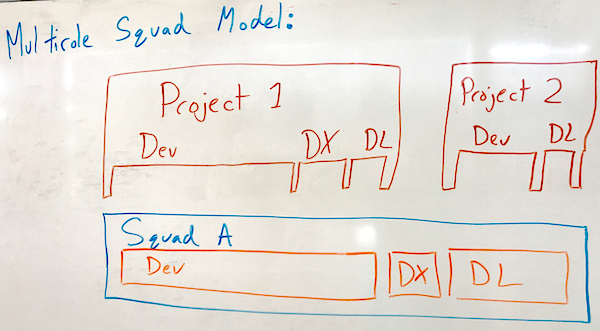 Multirole Squad Model:
Project 1
Dev DX DL
Project 2
Dev DL
Squad A
Dev DX DL